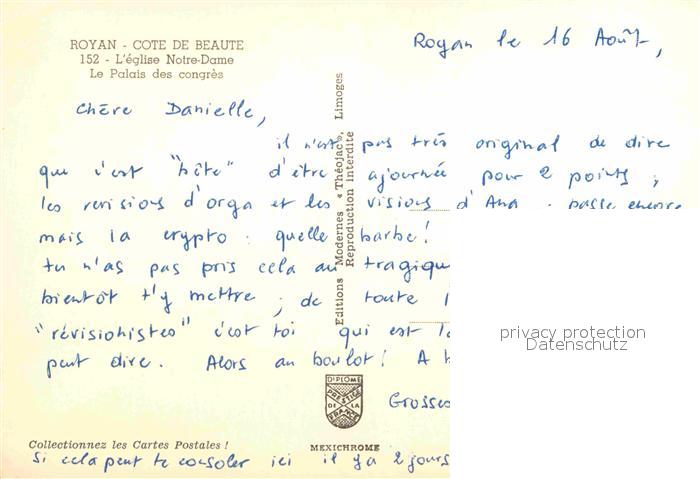 ROYAN - COTE DE BEAUTE
152 - L'église Notre-Dame
Le Palais des congrès
Royan le 16 Août,
Chère Danielle,
il n'est pas très original de dire
que c'est "bête" d'être ajournée pour 2 points ;
les revisions d'orga et les visions d'Ana . passe encore
mais la crypto . quelle barbe !
tu n'as pas pris cela au tragiqu
bientôt t'y mettre ; de toute
"révisionistes" c'est toi qui est
peut dire. Alors au boulot ! A
Grosses
Si cela peut te consoler ici il y a 2 jours
Editions Modernes « Théojac », Limoges
Reproduction Interdite
DIPLOME
PRESTIGE
DE LA
FRANCE
Collectionnez les Cartes Postales !
MEXICHROME
privacy protection
Datenschutz